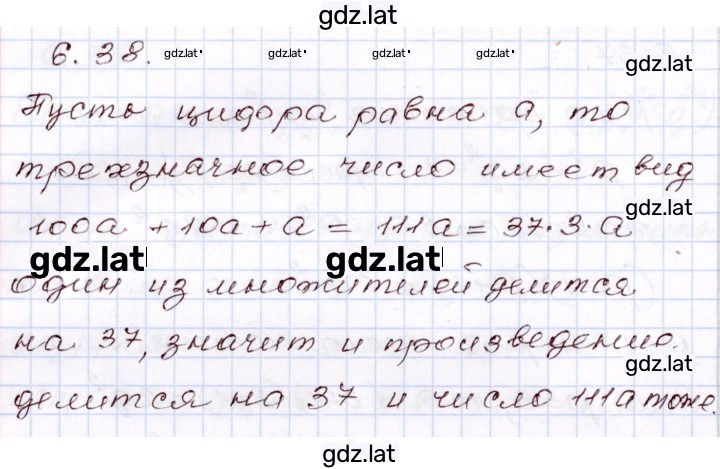 gdz.lat
6.38. gdz.lat gdz.lat gdz.lat gdz.lat gdz.lat
Пусть цифра равна a, то
трехзначное число имеет вид
gdz.lat
100a + 10a + a = 111a = 37·3·a
gdz.lat gdz.lat
Один из множителей делится
на 37, значит и произведение
gdz.lat
делится на 37 и число 111a тоже.
gdz.lat